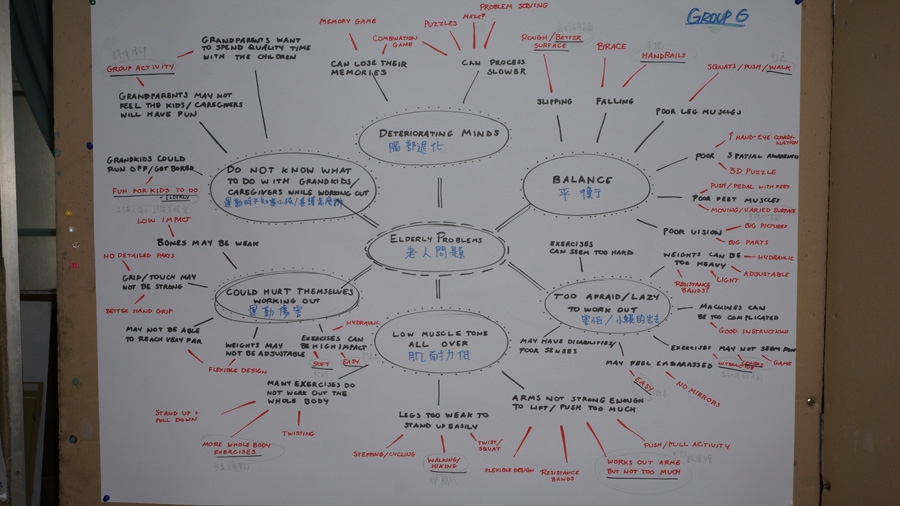 GROUP 6
PROBLEM SOLVING
MEMORY GAME
MAZE?
PUZZLES
COMBINATION
GAME
CAN LOSE THEIR
MEMORIES
CAN PROCESS
SLOWER
DETERIORATING MINDS
腦部退化
GRANDPARENTS WANT
TO SPEND QUALITY TIME
WITH THE CHILDREN
GROUP ACTIVITY
GRANDPARENTS MAY NOT
FEEL THE KIDS/CAREGIVERS
WILL HAVE FUN
GRANDKIDS COULD
RUN OFF/GOT BORED
FUN FOR KIDS TO DO
+ ELDERLY
DO NOT KNOW WHAT
TO DO WITH GRANDKIDS/
CAREGIVERS WHILE WORKING OUT
ROUGH/BETTER
SURFACE
BRACE
HANDRAILS
SQUATS/PUSH/WALK
SLIPPING
FALLING
POOR LEG MUSCLES
BALANCE
平衡
POOR
HAND-EYE COORDI-
NATION
SPATIAL AWARENESS
3D PUZZLE
PUSH/PEDAL WITH FEET
POOR FEET MUSCLES
MOVING/VARIED SURFACE
POOR VISION
BIG PICTURES
BIG PARTS
ELDERLY PROBLEMS
老人問題
LOW IMPACT
BONES MAY BE WEAK
NO DETAILED PARTS
GRIP/TOUCH MAY
NOT BE STRONG
BETTER HAND GRIP
MAY NOT BE ABLE
TO REACH VERY FAR
FLEXIBLE DESIGN
COULD HURT THEMSELVES
WORKING OUT
運動傷害
WEIGHTS MAY
NOT BE ADJUSTABLE
HYDRAULIC
EXERCISES CAN
BE HIGH IMPACT
SOFT
EASY
EXERCISES
CAN SEEM TOO HARD
WEIGHTS CAN BE
TOO HEAVY
HYDRAULIC
ADJUSTABLE
LIGHT
RESISTANCE
BANDS?
TOO AFRAID/LAZY
TO WORK OUT
MACHINES CAN
BE TOO COMPLICATED
GOOD INSTRUCTIONS
EXERCISES MAY NOT SEEM FUN
INTERACTIVE
GAME
MAY HAVE DISABILITIES/
POOR SENSES
MAY FEEL EMBARASSED
EASY
NO MIRRORS
LOW MUSCLE TONE
ALL OVER
肌耐力低
MANY EXERCISES DO
NOT WORK OUT THE
WHOLE BODY
STAND UP &
PULL DOWN
MORE WHOLE BODY
EXERCISES
TWISTING
LEGS TOO WEAK TO
STAND UP EASILY
STEPPING/CYCLING
WALKING/
HIKING
TWIST/
SQUAT
ARMS NOT STRONG ENOUGH
TO LIFT/PUSH TOO MUCH
FLEXIBLE DESIGN
RESISTANCE
BANDS
WORKS OUT ARMS
BUT NOT TOO MUCH
PUSH/PULL ACTIVITY